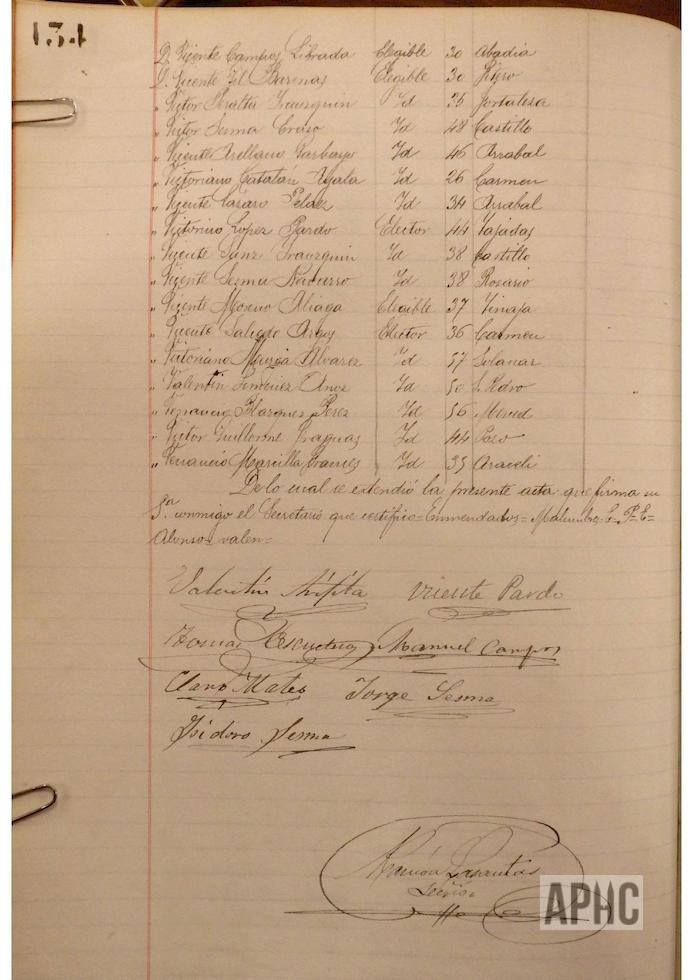 134
D. Vicente Campos Librada Elegible 30 Abadia
D. Vicente Gil Barinas Elegible 30
" Victor Peralta Irauzquin Id 35 Fortalesa
" Victor Serma Id 48 Castillo
" Vicente Arellano Garbayo Id 46 Arrabal
" Victoriano Catalán Ayala Id 26 Carmen
" Vicente Lázaro Pelaez Id 34 Arrabal
" Victorino Lopez Pardo Elector 44 Tajadas
" Vicente Sanz Irauzquin Id 38 Castillo
" Vicente Sesma Navarro Id 38 Rosario
" Vicente Moreno Aliaga Elegible 37 Tinaja
" Vicente Salcedo Elector 36 Carmen
" Victoriano Alvarez Id 57 Solanar
" Valentin Jimenez Id 50 S. Pedro
" Venancio Blazquez Perez Id 56 Merced
" Victor Guillorme Id 44 Poso
" Venancio Marcilla Id 35 Araceli
De lo cual se extendió la presente acta que firma su
S.ª conmigo el Secretario que certifico = Enmendados =
Alonso = valen =
Valentin Vicente Pardo
Tomas Escudero Manuel Campos
Claro Mateo Jorge Sesma
Isidoro Sesma
Ramón Lasantas
Secrio.
APHC